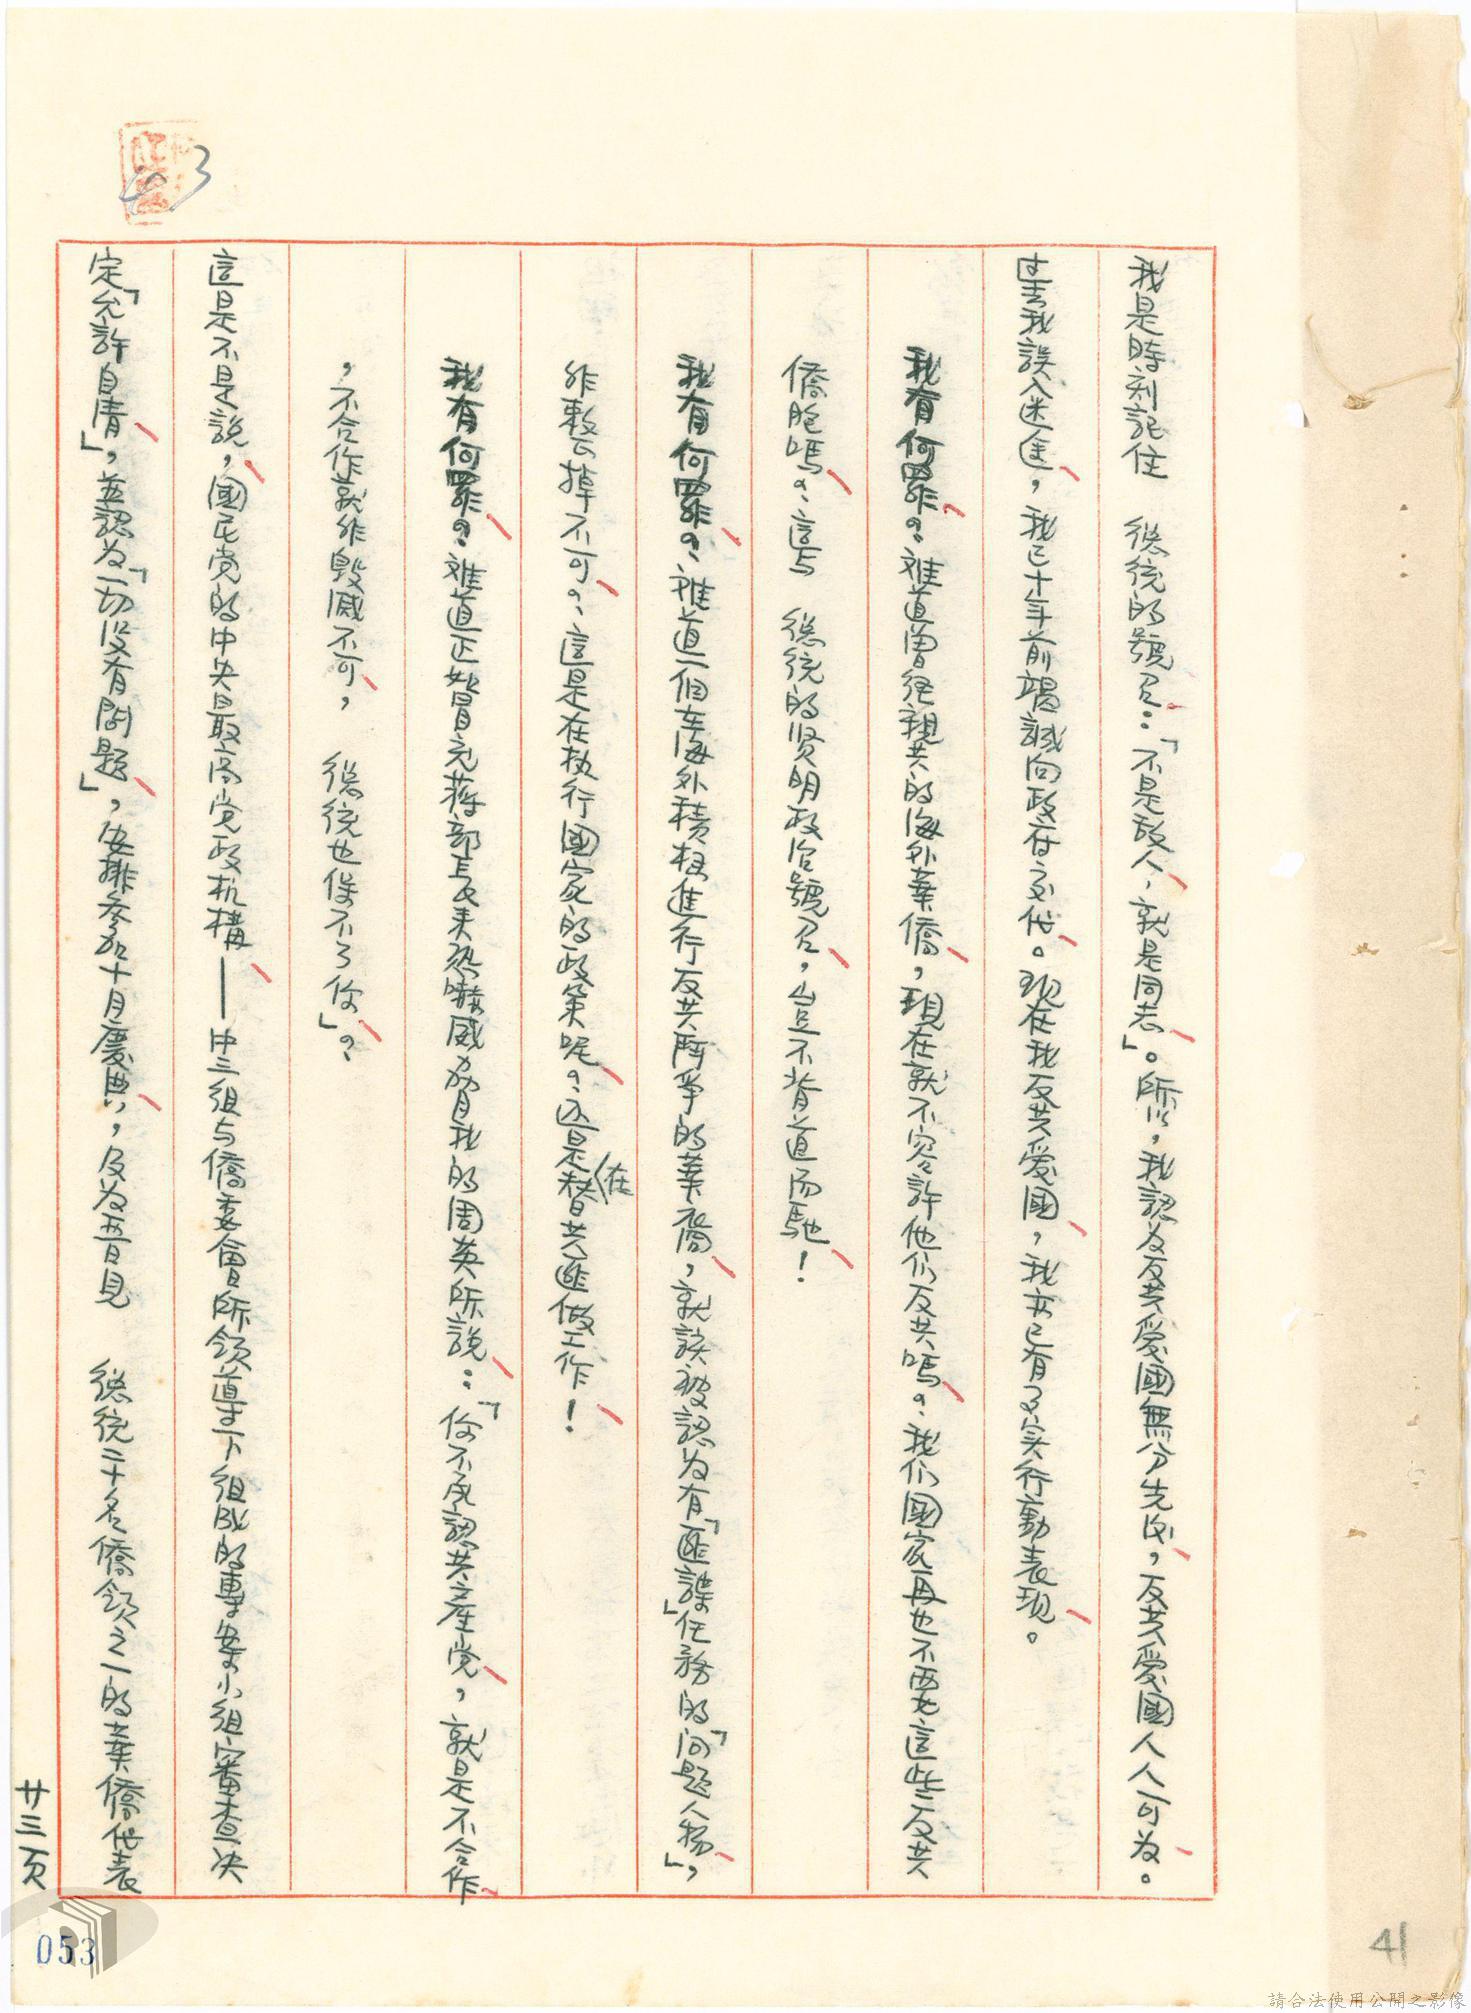 我是時刻記住　總統的號召：「不是敌人，就是同志」。所以，我認为反共愛國無分先后，反共愛國人人可为。
过去我誤入迷途，我已十年前竭誠向政府交代。現在我反共愛國，我亦已有了实行動表現。
我有何罪？誰道曾經親共的海外華僑，現在就不容許他们反共嗎？我们國家再也不要这些反共
僑胞嗎？這与　總統的贤明政治號召，豈不背道而馳！
我有何罪？誰道一個在海外積極進行反共鬥爭的華裔，就該被認为有「匪諜」任務的「问題人物」，
非整掉不可？這是在执行國家的政策呢？还是在替共匪做工作！
我有何罪？誰道正如冒充蔣部長来恐嚇威脅我的周英所說：「你不承認共產党，就是不合作
，不合作就非毀滅不可，　總統也保不了你」？
這是不是說，國民党的中央最高党政机構——中三組与僑委會所領導下組成的專案小組審查决
定「允許自清」，並認为「一切没有問題」，安排参加十月慶典，及为晋見　總統二十名僑領之一的華僑代表
廿三頁
053
41
請合法使用公開之影像